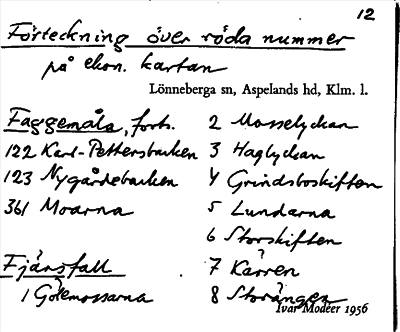 12
Förteckning över röda nummer
på ekon. kartan
Lönneberga sn, Aspelands hd, Klm. l.
Faggemåla, forts.
122 Karl-Pettersbacken
123 Nygårdebacken
361 Moarna
Fjärsfall
1 Götemossarna
2 Mosselyckan
3 Haglyckan
4 Grindsboskiften
5 Lundarna
6 Storskiften
7 Kärren
8 Storängen
Ivar Modéer 1956